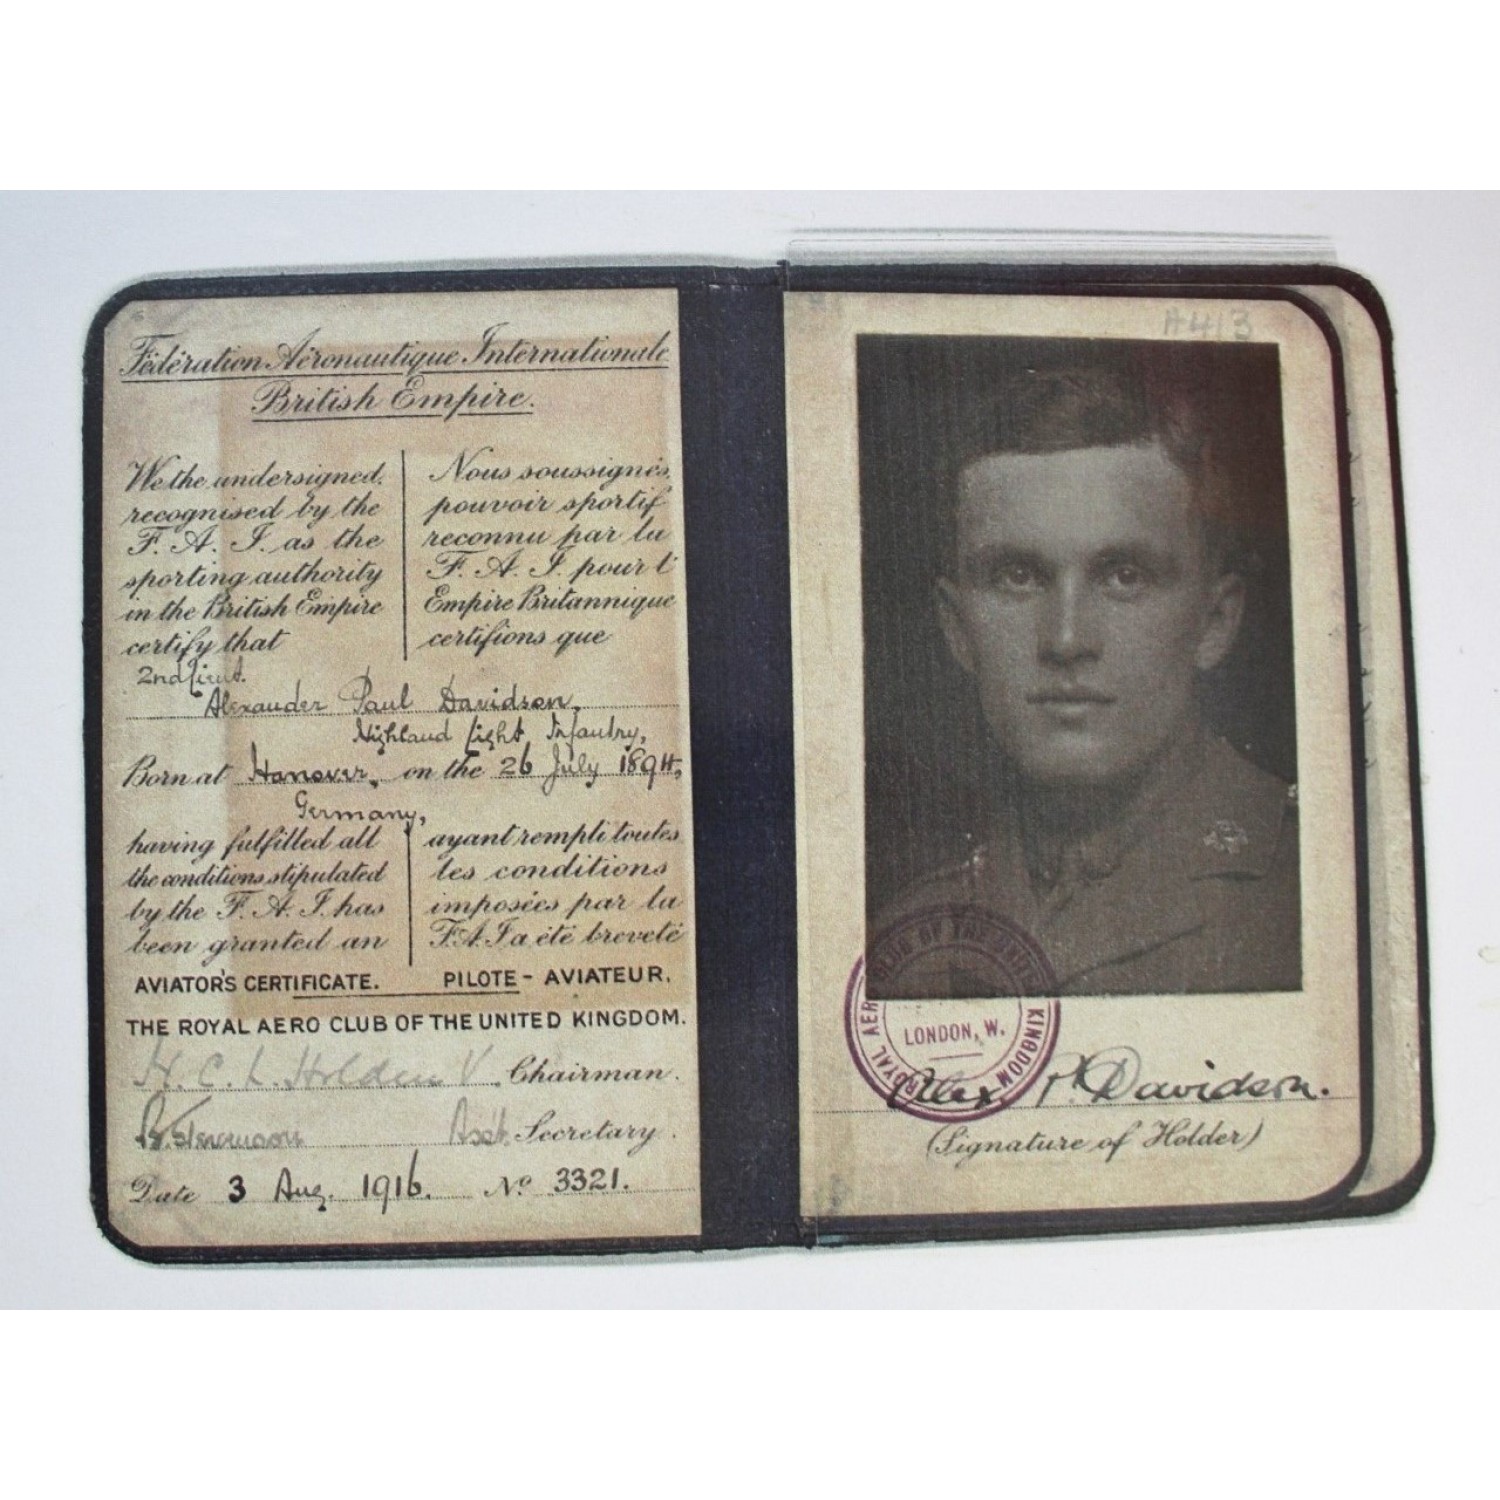 Fédération Aéronautique Internationale
British Empire.
We the undersigned,
recognised by the
F. A. I. as the
sporting authority
in the British Empire
certify that
Nous soussignés,
pouvoir sportif
reconnu par la
F. A. I. pour l'
Empire Britannique
certifions que
2nd Lieut.
Alexander Paul Davidson,
Highland Light Infantry,
Born at Hanover, on the 26 July 1894,
Germany,
having fulfilled all
the conditions stipulated
by the F. A. I. has
been granted an
ayant rempli toutes
les conditions
imposées par la
F.A.I a été breveté
AVIATOR'S CERTIFICATE. PILOTE - AVIATEUR.
THE ROYAL AERO CLUB OF THE UNITED KINGDOM.
H. C. L. Holden Chairman.
Asst. Secretary.
Date 3 Aug. 1916. No. 3321.
H413
ROYAL AERO CLUB OF THE UNITED KINGDOM
LONDON, W.
Alex. P. Davidson.
(Signature of Holder)